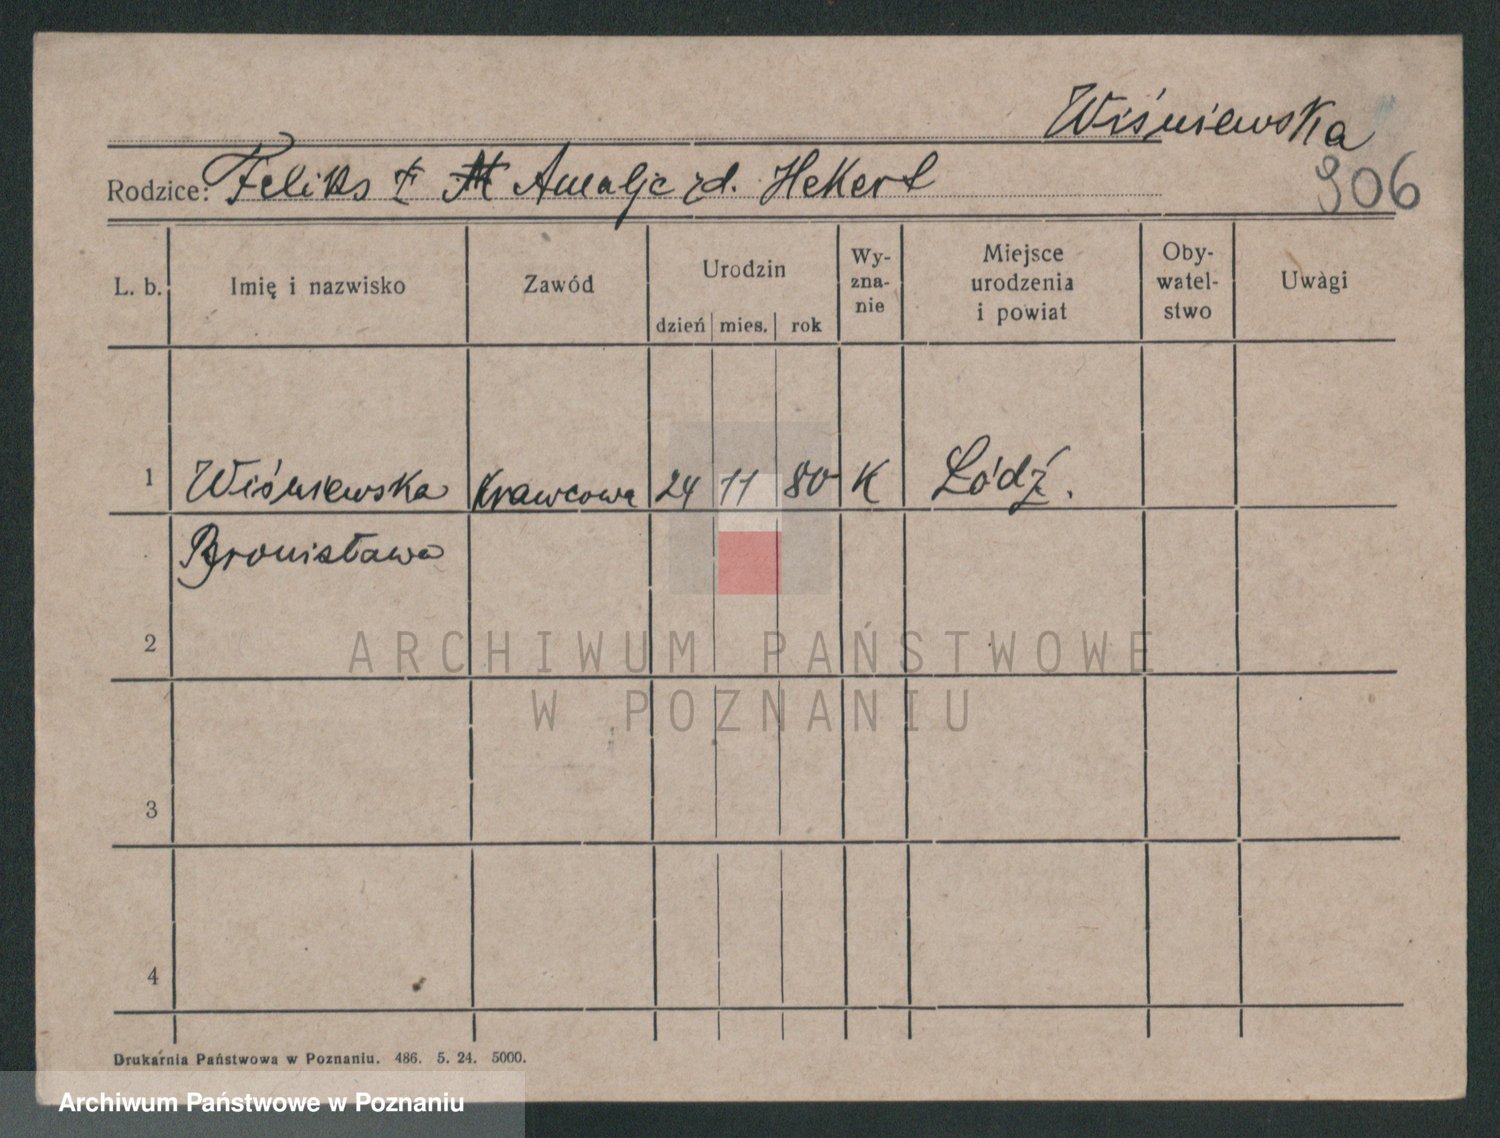 Wiśniewska
Rodzice: Feliks i Amalje zd. Hekert
906
L. b.
Imię i nazwisko
Zawód
Urodzin
dzień mies. rok
Wy-
zna-
nie
Miejsce
urodzenia
i powiat
Oby-
watel-
stwo
Uwagi
1 Wiśniewska Krawcowa 24 11 80 K Łódź.
Bronisława
2
ARCHIWUM PAŃSTWOWE
W POZNANIU
3
4
Drukarnia Państwowa w Poznaniu. 486. 5. 24. 5000.
Archiwum Państwowe w Poznaniu